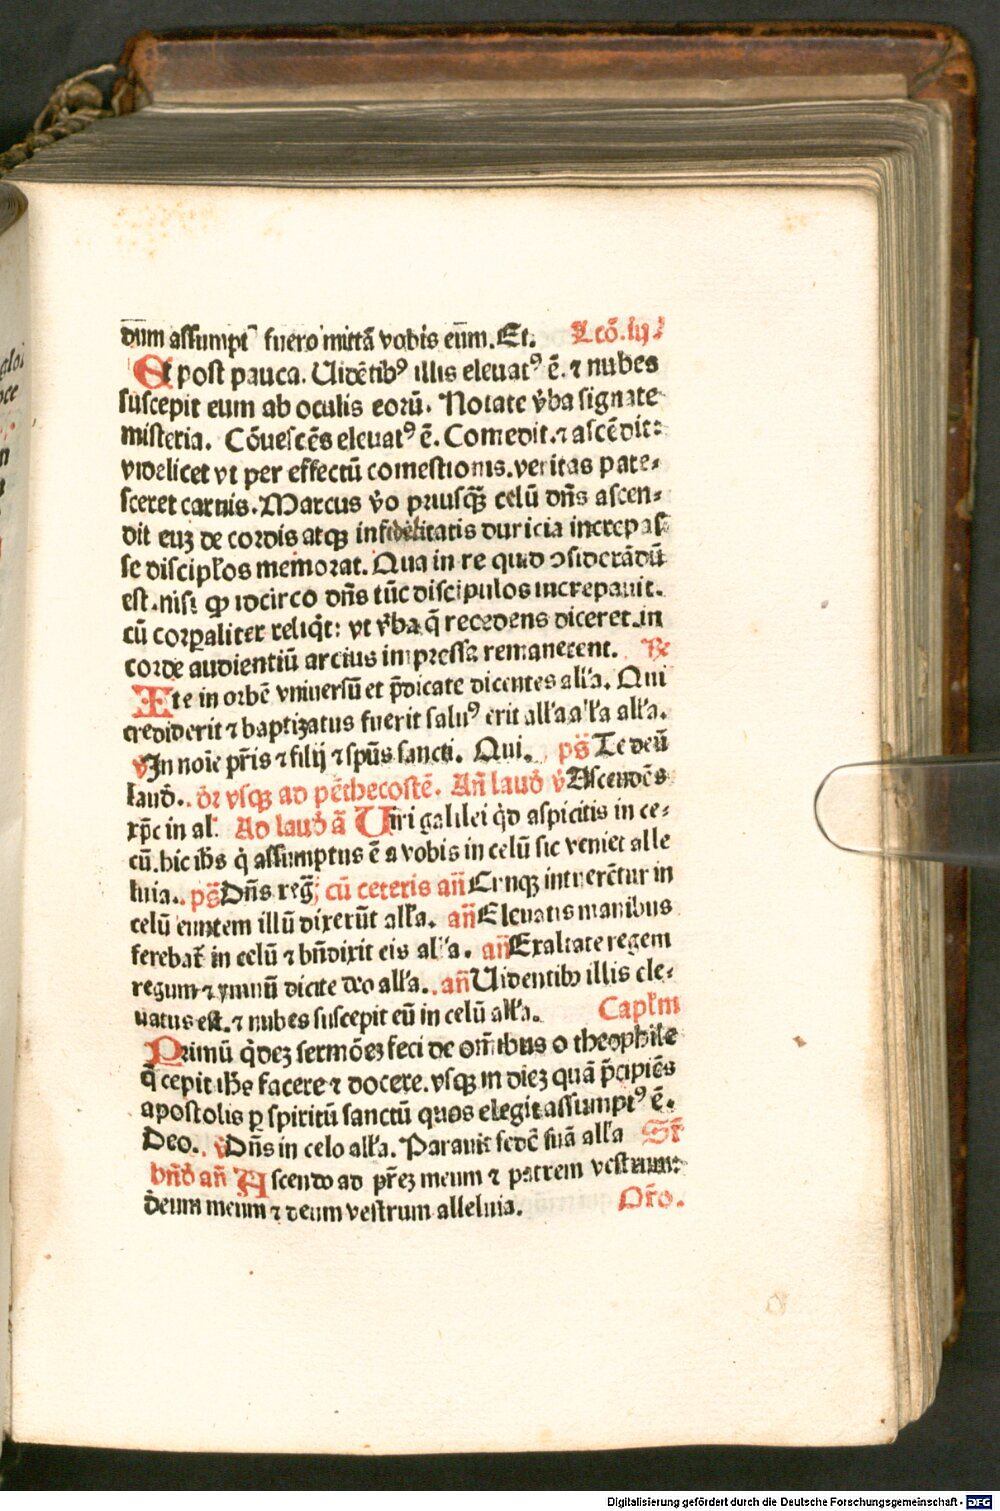 dum assumptꝰ fuero mittā vobis eum. Et. Lcō. iij.
Et post pauca. Uidētibꝰ illis eleuatꝰ ē. ⁊ nubes
suscepit eum ab oculis eorū. Notate v̄ba signate
misteria. Cōuescēs eleuatꝰ ē. Comedit. ⁊ ascēdit:
videlicet vt per effectū comestionis. veritas pate⸗
sceret carnis. Marcus v̄o priusqꝫ celū dn̄s ascen⸗
dit euꝫ de cordis atqꝫ infidelitatis duricia increpas
se discipl̄os memorat. Qua in re quid ↄsiderādū
est. nisi ꝙ idcirco dn̄s tūc discipulos increpauit.
cū corꝑaliter reliq̄t: vt v̄ba q̄ recedens diceret. in
corde audientiū arcius impressa remanerent. R̄
Ite in orbē vniuersū et p̄dicate dicentes all'a. Qui
crediderit ⁊ baptizatus fuerit saluꝰ erit all'a all'a all'a.
v̄ In noīe pr̄is ⁊ filij ⁊ sp̄us sancti. Qui. ps̄ Te deū
laud̄. dr̄ vsqꝫ ad pēthecostē. An̄ laud̄ v̄ Ascendēs
xp̄c in al. Ad laud̄ ā Uiri galilei q̄d aspicitis in ce⸗
cū. hic ih̄s q̄ assumptus ē a vobis in celū sic veniet alle
luia. ps̄ Dn̄s reḡ; cū ceteris an̄ Cunqꝫ intuerētur in
celū euntem illū dixerūt all'a. an̄ Eleuatis manibus
ferebat̄ in celū ⁊ bn̄dixit eis all'a. an̄ Exaltate regem
regum ⁊ ymnū dicite deo all'a. an̄ Uidentibꝫ illis ele⸗
uatus est. ⁊ nubes suscepit eū in celū all'a. Capl̄m
Primū q̄deꝫ sermōeꝫ feci de om̄ibus o theophile
q̄ cepit ih̄s facere ⁊ docere. vsqꝫ in dieꝫ quā p̄cipiēs
apostolis ꝑ spiritū sanctū quos elegit assumptꝰ ē.
Deo. v̄ Dn̄s in celo all'a. Parauit sedē suā all'a Sr̄
bn̄d̄ an̄ Ascendo ad pr̄eꝫ meum ⁊ patrem vestrum:
deum meum ⁊ deum vestrum alleluia. Or̄o.
Digitalisierung gefördert durch die Deutsche Forschungsgemeinschaft - DFG